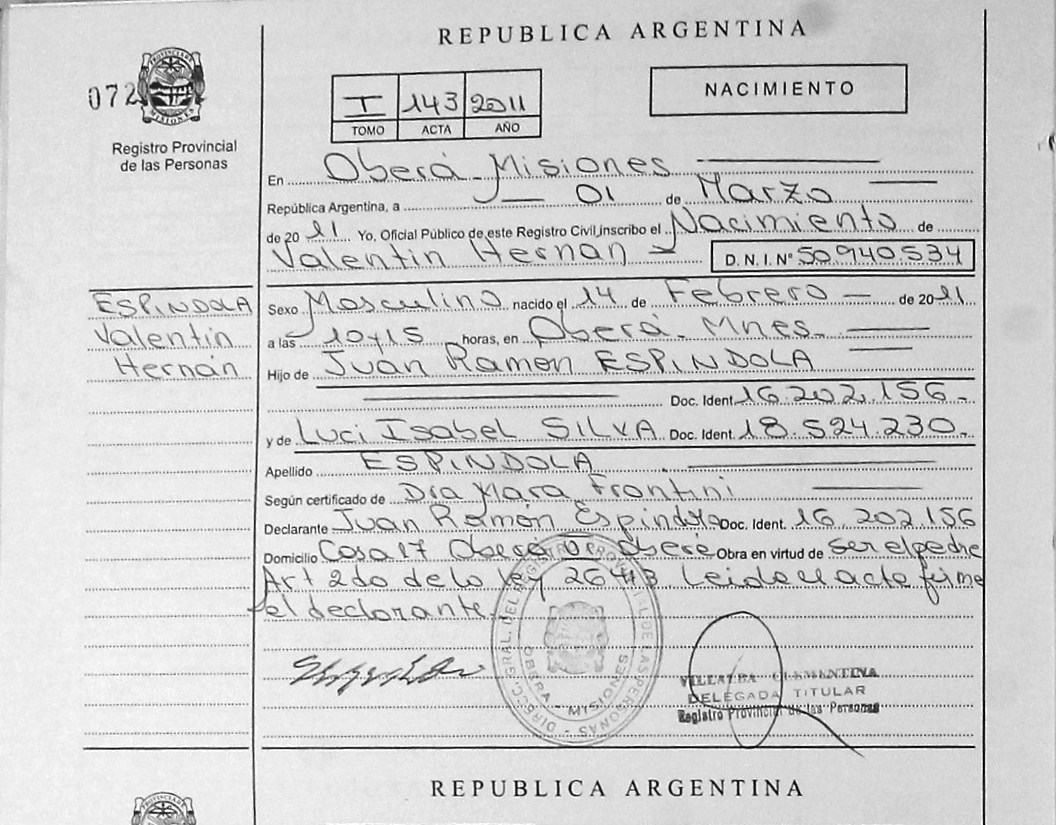 REPUBLICA ARGENTINA
072
PROVINCIA DE MISIONES
Registro Provincial
de las Personas
I 143 2011
TOMO ACTA AÑO
NACIMIENTO
En Oberá - Misiones
República Argentina, a 01 de Marzo
de 2011 Yo, Oficial Público de este Registro Civil inscribo el Nacimiento de
Valentin Hernan D. N. I. Nº 50.940.534
ESPINDOLA
Valentín
Hernán
Sexo Masculino nacido el 14 de Febrero de 2011
a las 10y15 horas, en Oberá - Mnes.
Hijo de Juan Ramon ESPINDOLA
Doc. Ident. 16.202.156
y de Luci Isabel SILVA Doc. Ident. 18.524.230
Apellido ESPINDOLA
Según certificado de Dra Mara Frontini
Declarante Juan Ramón Espindola Doc. Ident. 16.202.156
Domicilio Casa 17 Oberá Oberá Obra en virtud de ser el padre
Art 2do de la ley 26413 Leida el acta firma
el declarante.
DIRECC. GRAL. DEL REGISTRO PROVINCIAL DE LAS PERSONAS
OBERA - MISIONES
VILLALBA CLEMENTINA
DELEGADA TITULAR
Registro Provincial de las Personas
REPUBLICA ARGENTINA